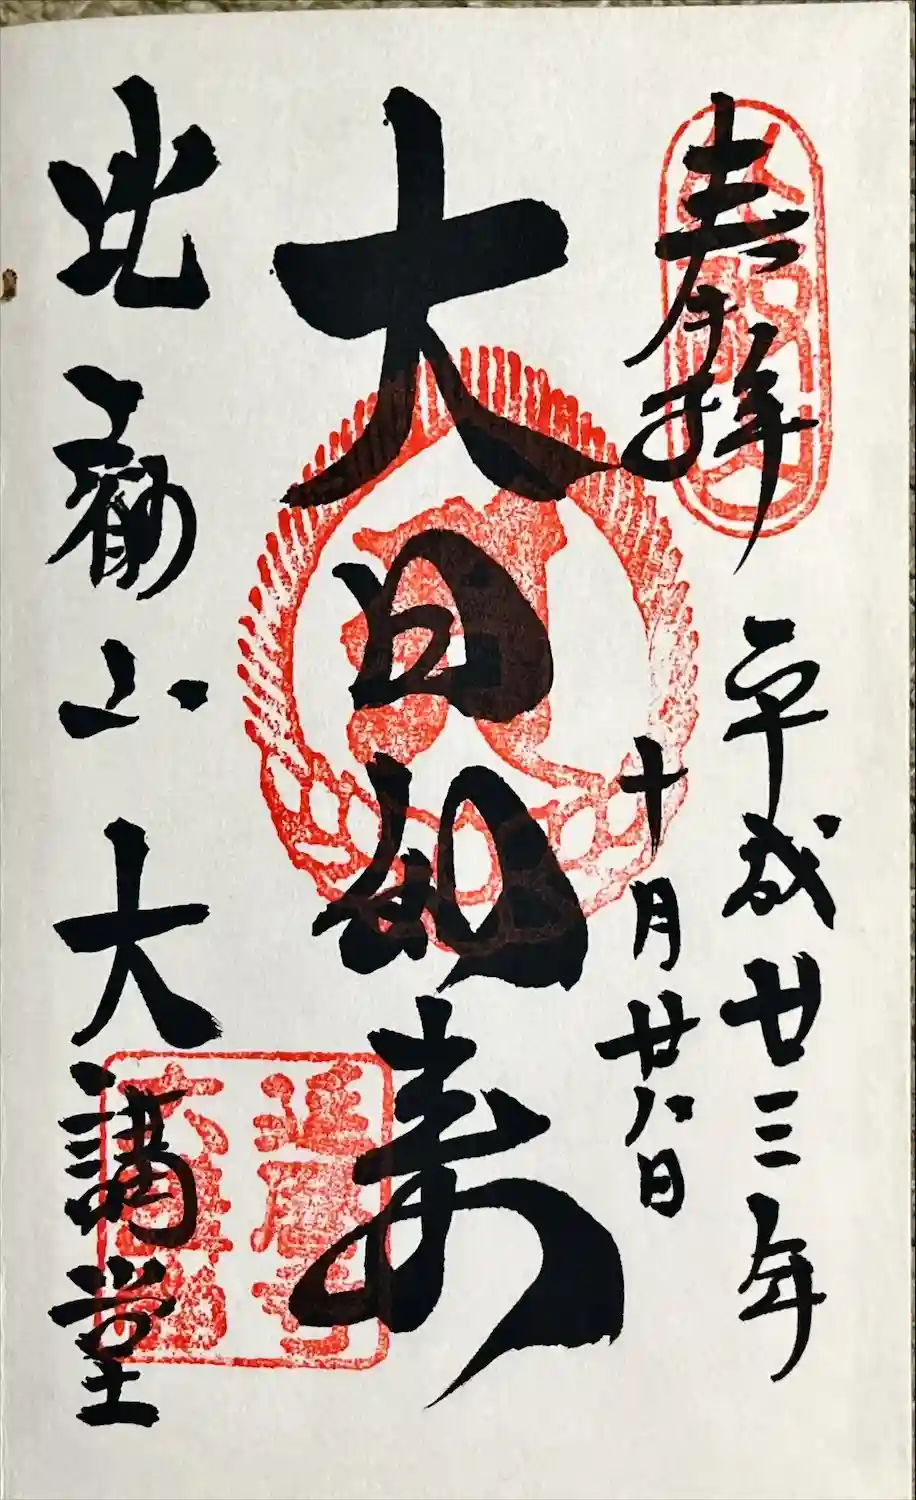 奉拝
平成廿三年
十月廿八日
大日如来
比叡山大講堂
延暦寺
大講堂